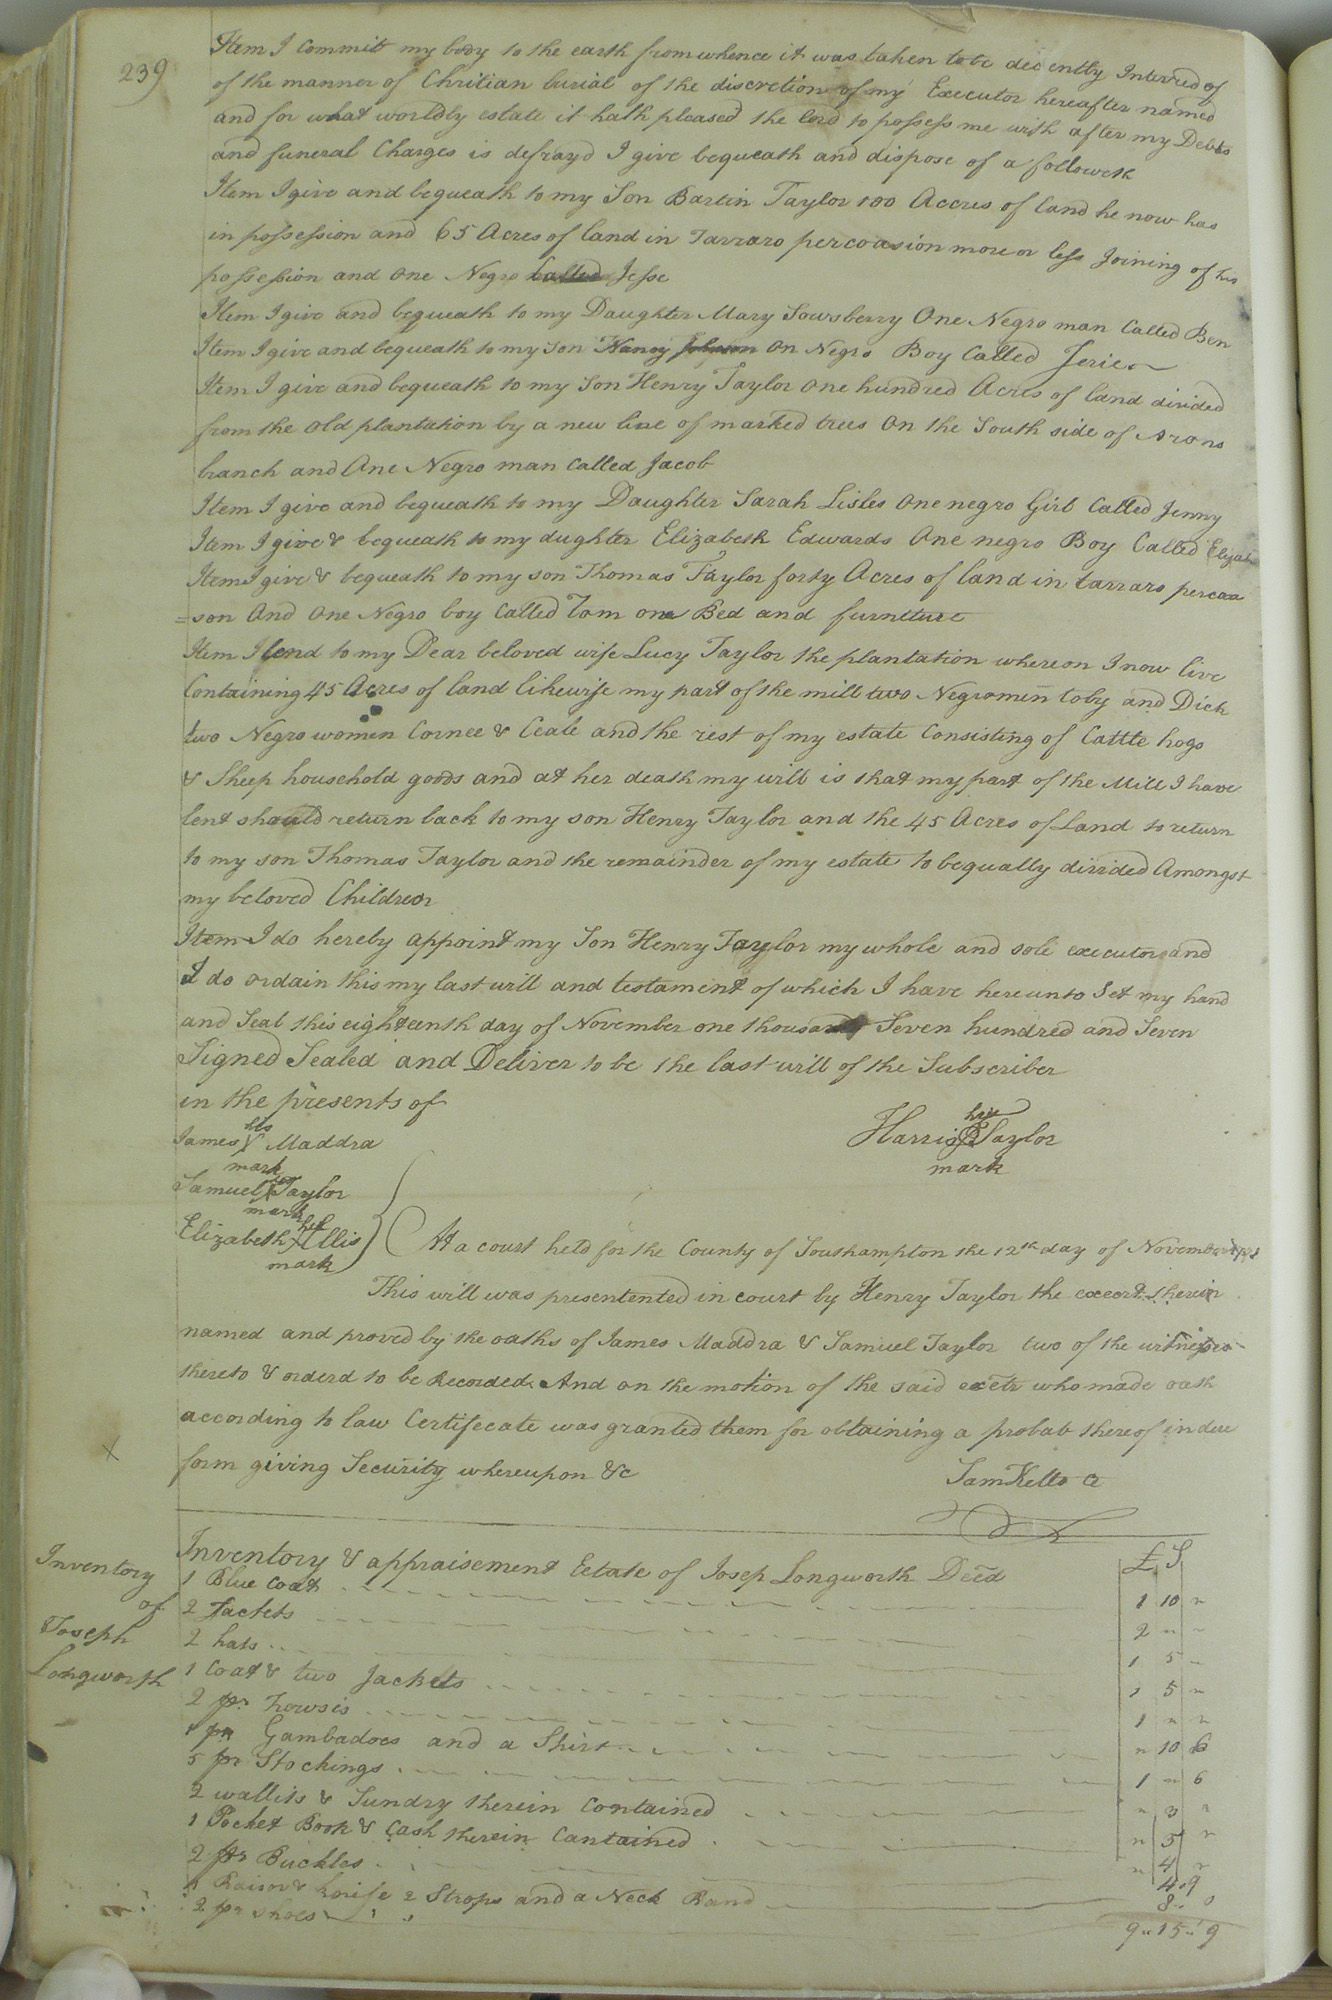 239
Item I Commit my body to the earth from whence it was taken to be decently Interred of
of the manner of Chritian burial of the discretion of my Executor hereafter named
and for what worldly estate it hath pleased the lord to possess me with after my Debts
and funeral Charges is defrayd I give bequeath and dispose of a followeth
Item I give and bequeath to my Son Bartin Taylor 100 Accres of land he now has
in possession and 65 Acres of land in Tarraro percoasion more or less Joining of his
possession and One Negro Called Jesse
Item I give and bequeath to my Daughter Mary Sowsberry One Negro man Called Ben
Item I give and bequeath to my Son on Negro Boy Called Jerie
Item I give and bequeath to my Son Henry Taylor One hundred Acres of land divided
from the old plantation by a new line of marked trees On the South side of Arons
branch and One Negro man Called Jacob
Item I give and bequeath to my Daughter Sarah Lisles One negro Girl Called Jenny
Item I give & bequeath to my dughter Elizabeth Edwards One negro Boy Called Elijah
Item I give & bequeath to my son Thomas Taylor forty Acres of land in tarraro percoa
=son And One Negro boy Called Tom one Bed and furneture
Item I lend to my Dear beloved wife Lucy Taylor the plantation whereon I now live
Containing 45 Acres of land likewise my part of the mill two Negromen toby and Dick
two Negro women Cornee & Ceale and the rest of my estate Consisting of Cattle hogs
& Sheep household goods and at her death my will is that my part of the Mill I have
lent should return back to my son Henry Taylor and the 45 Acres of Land to return
to my son Thomas Taylor and the remainder of my estate to bequally divided Amongst
my beloved Children
Item I do hereby appoint my Son Henry Taylor my whole and sole executor and
I do ordain this my last will and testament of which I have hereunto Set my hand
and Seal this eighteenth day of November one thousand Seven hundred and Seven
Signed Sealed and Deliver to be the last will of the Subscriber
in the presents of
his
James Maddra
mark
his
Harris Taylor
mark
Samuel Taylor
mark
her
Elizabeth X Ellis
mark
At a court held for the County of Southampton the 12th day of November
This will was presentented in court by Henry Taylor the execort therein
named and proved by the oaths of James Maddra & Samuel Taylor two of the witnesses
thereto & orderd to be Recorded And on the motion of the said exetr who made oath
according to law Certifecate was granted them for obtaining a probab thereof in due
form giving Security whereupon &c
Sam Kello C
X
Inventory
of
Joseph
Longworth
Inventory & appraisement Estate of Josep Longworth Decd £ S
1 Blue Coat 1 10 "
2 Jackets 2 " "
2 hats 1 5 "
1 Coat & two Jackets 1 5 "
2 pr Trowsis 1 " "
1 pr Gambadoes and a Shirt " 10 6
5 pr Stockings 1 " 6
2 wallits & Sundry therein Contained " 3 "
1 Pocket Book & Cash therein Contained " 5 "
2 pr Buckles " 4 "
1 Raisor & knife 2 Strops and a Neck Band 4 " 9
2 pr Shoes 8 " 0
9 " 15 " 9